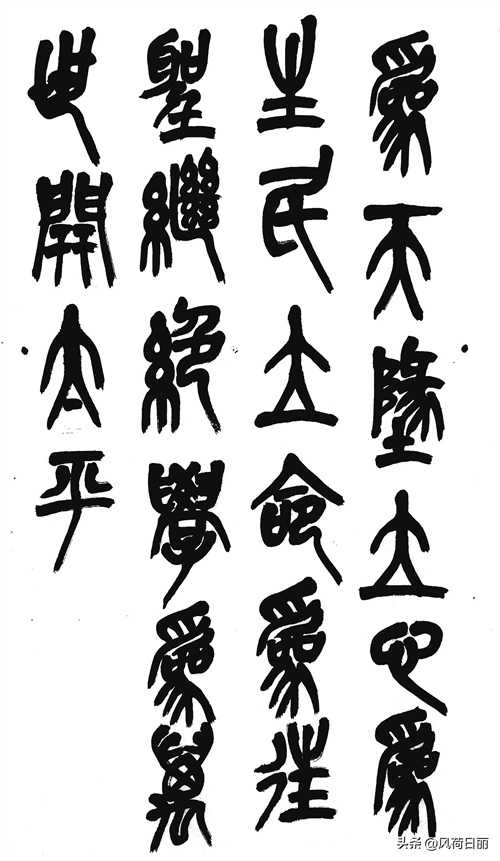 爲天墬立心爲
生民立命爲往
聖繼絕學爲萬
世開太平
头条 @风荷日丽